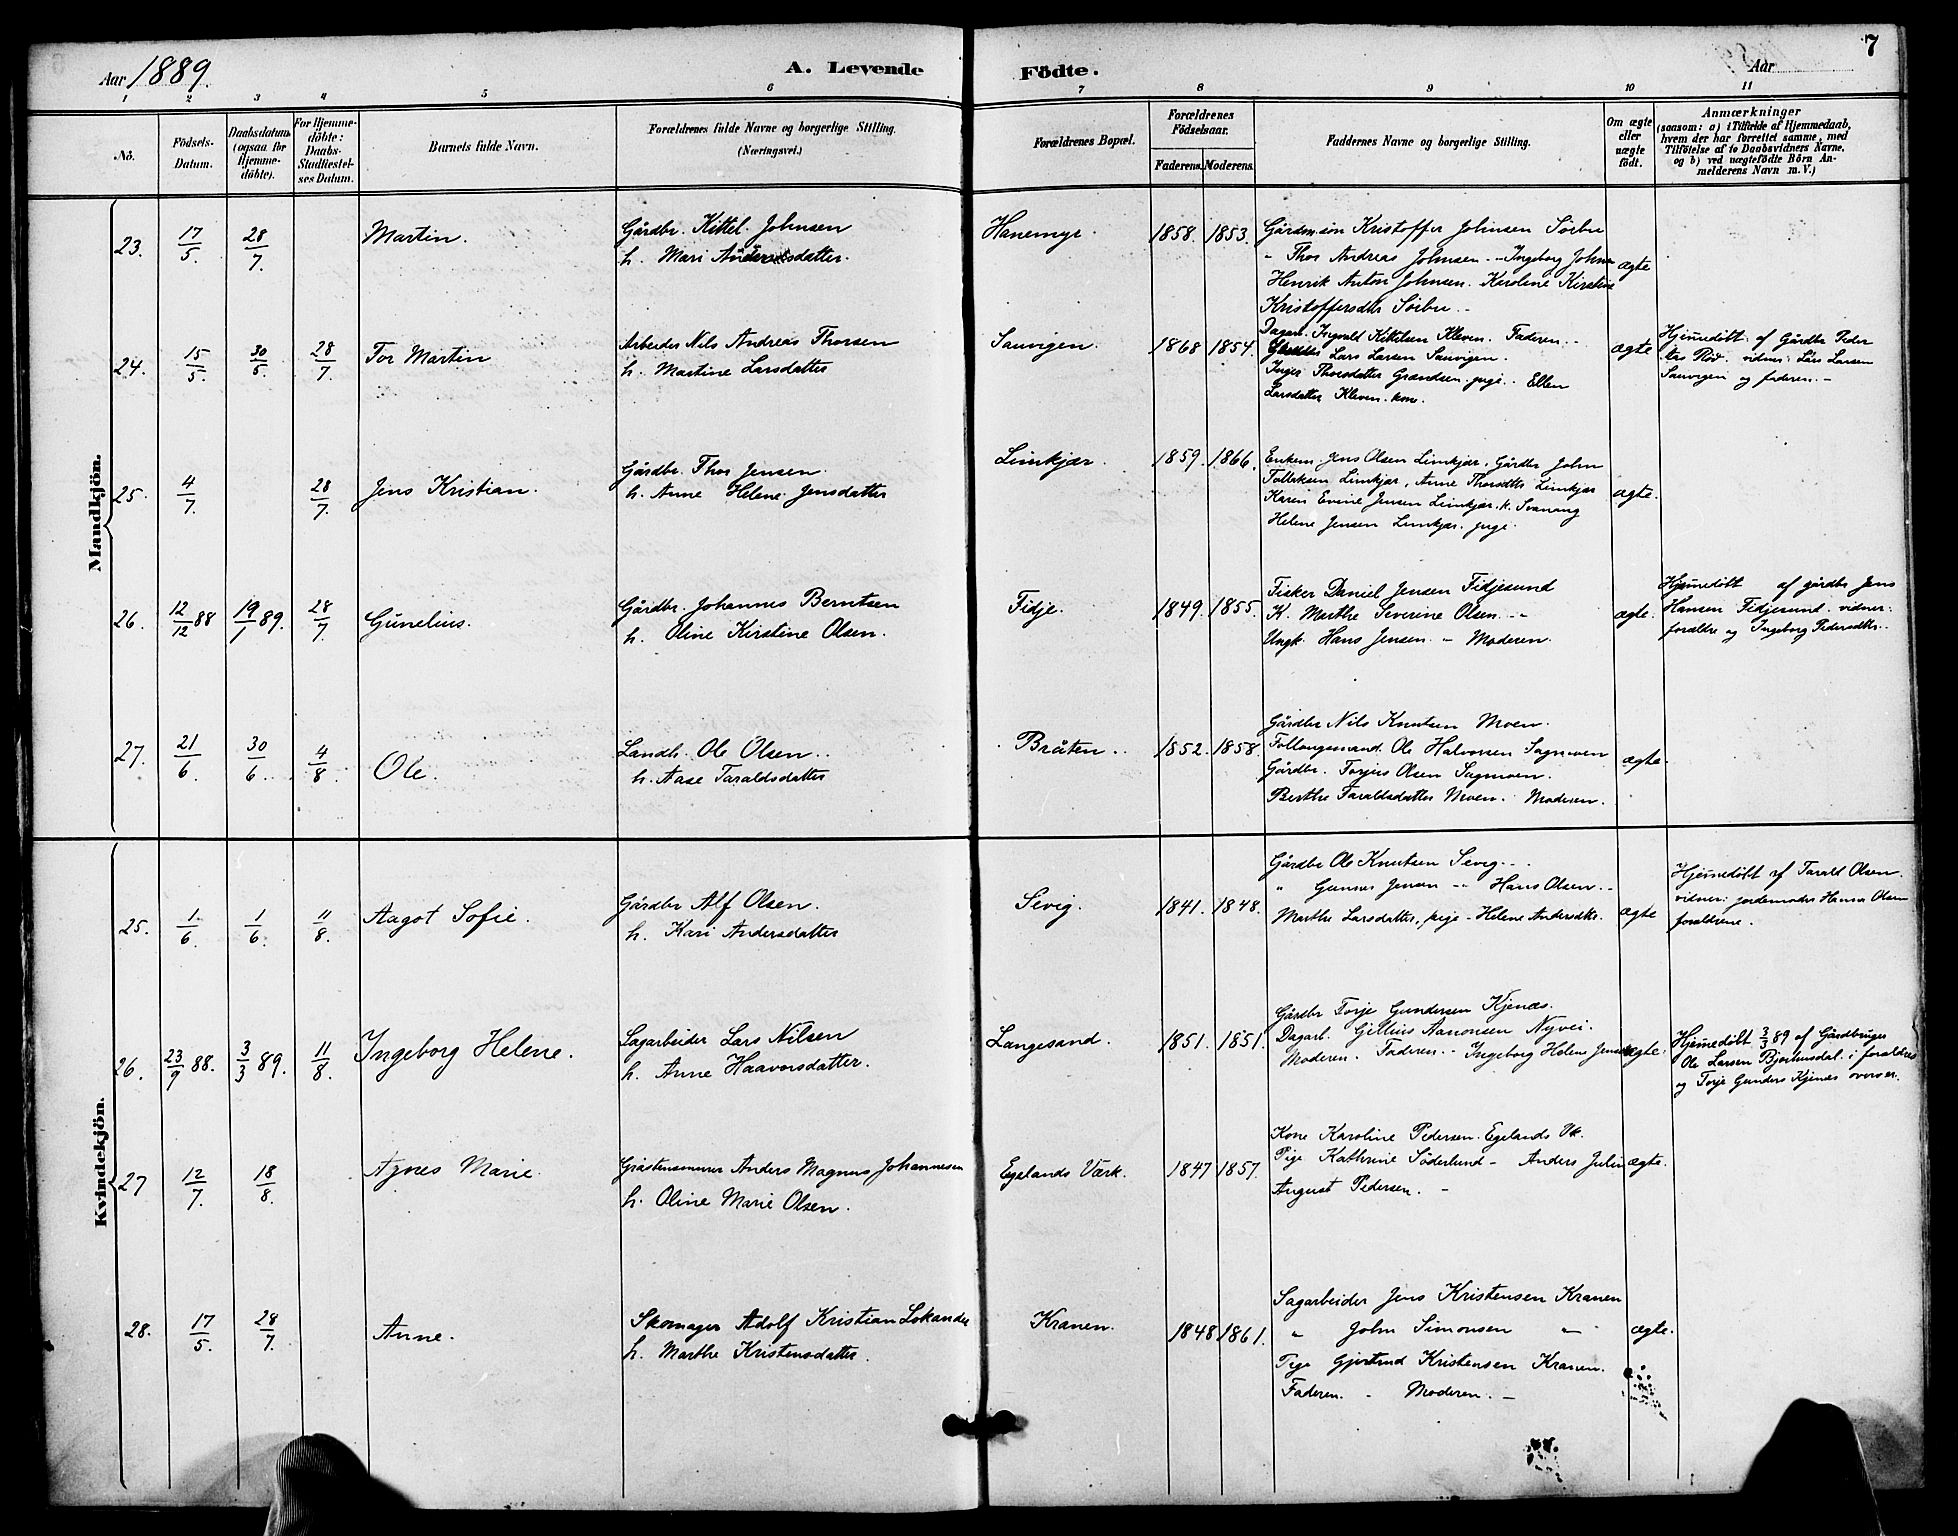 Aar 1889.
A. Levende Födte.
Aar
7
1 2 3 4 5 6 7 8 9 10 11
No.
Födsels-
Datum.
Daabsdatum
(ogsaa for
Hjemme-
döbte).
For Hjemme-
döbte:
Daabs-
Stadfæstel-
ses Datum.
Barnets fulde Navn.
Forældrenes fulde Navne og borgerlige Stilling.
(Næringsvei.)
Forældrenes Bopæl.
Forældrenes
Födselsaar.
Faderens. Moderens.
Faddernes Navne og borgerlige Stilling.
Om ægte
eller
uægte
födt.
Anmærkninger
(saasom: a) i Tilfælde af Hjemmedaab,
hvem der har forrettet samme, med
Tilföielse af to Daabsvidners Navne,
og b) ved uægtefödte Börn An-
melderens Navn m. V.)
Mandkjön.
23. 17/5. 28/7. Martin.
Gårdbr. Kittel Johnsen
h. Mari Andersdatter.
Hanemyr. 1858. 1853.
Gårdm.søn Kristoffer Johnsen Søibu
" Thor Andreas Johnsen - Ingeborg Johns
Henrik Anton Johnsen. Karoline Kirstine
Kristoffersdtr Søibu -
ægte
24. 15/5. 30/5 28/7 Tor Martin
Arbeider Nils Andreas Thorsen
h. Martine Larsdatter
Sauvigen. 1868 1854.
Dagarb. Ingvald Kittelsen Kleven. Faderen. -
Lars Larsen Sauvigen.
Inger Thorsdatter Grændsen. pige. Ellen
Larsdatter Kleven. kon.
ægte
Hjemmedöbt af Gårdbr Peder
Röd. vidner: Lars Larsen
Sauvigen og faderen. -
25. 4/7. 28/7. Jens Kristian.
Gårdbr. Thor Jensen
h. Anne Helene Jensdatter
Limkjær. 1859. 1866.
Enkem. Jens Olsen Limkjær. Gårdbr John
Tolleksen Limkjær, Anne Thorsdtr Limkjær
Karen Evine Jensen Limkjær. k. Svanaug
Helene Jensen Limkjær. pige.
ægte.
26. 12/12 88 19/1 89. 28/7 Gunelius.
Gårdbr. Johannes Berntsen
h. Oline Kirstine Olsen.
Fidje. 1849. 1855.
Fisker Daniel Jensen Fidjesund
K. Marthe Severine Olsen. -
Ungk. Hans Jensen. - Moderen.
ægte.
Hjemmedöbt af gårdbr Jens
Hansen Fidjesund. vidner:
forældre og Ingeborg Pedersdtr.
27. 21/6. 30/6. 4/8 Ole.
Landh. Ole Olsen.
h. Aase Taraldsdatter
Bråten. 1852. 1858.
Gårdbr Nils Knutsen Moen.
Follaugsmand. Ole Halvorsen Sagmoen
Gårdbr. Torjus Olsen Sagmoen.
Berthe Taraldsdatter Moen. Moderen.
ægte.
Kvindekjön.
25. 1/6. 1/6. 11/8. Aagot Sofie.
Gårdbr Alf Olsen.
h. Kari Andersdatter
Sevig. 1841. 1848.
Gårdbr Ole Knutsen Sevig. -
" Gunner Jensen - Hans Olsen. -
Marthe Larsdatter, pige - Helene Andersdtr.
ægte
Hjemmedöbt af Tarald Olsen.
vidner: jordemoder Hanna Olsen
forældrene.
26. 23/9 88. 3/3 89. 11/8. Ingeborg Helene.
Sagarbeider Lars Nilsen
h. Anne Haavorsdatter.
Langesand. 1851. 1851.
Gårdbr Torje Gundersen Kjenæs.
Dagarb. Gjellius Aanonsen Nyvei.
Moderen. Faderen. - Ingeborg Helene Jensen
ægte.
Hjemmedöbt 3/3 89 af Gårdbruger
Ole Larsen Bjortusdal. i forældres
og Torje Gunders Kjenæs overvær.
27 12/7. 18/8. Agnes Marie.
Gråstensmurer Anders Magnus Johannesen
h. Oline Marie Olsen.
Egelands Værk. 1847 1857.
Kone Karoline Pedersen. Egelands Vk.
Pige Kathrine Söderlund - Anders Julin
August Pedersen. -
ægte.
28. 17/5. 28/7. Anne.
Skomager Adolf Kristian Lokander
h. Marthe Kristensdatter.
Kranen. 1848 1861.
Sagarbeider Jens Kristensen Kranen
" John Simonsen "
Pige Gjertrud Kristensen Kranen.
Faderen. - Moderen. -
ægte.